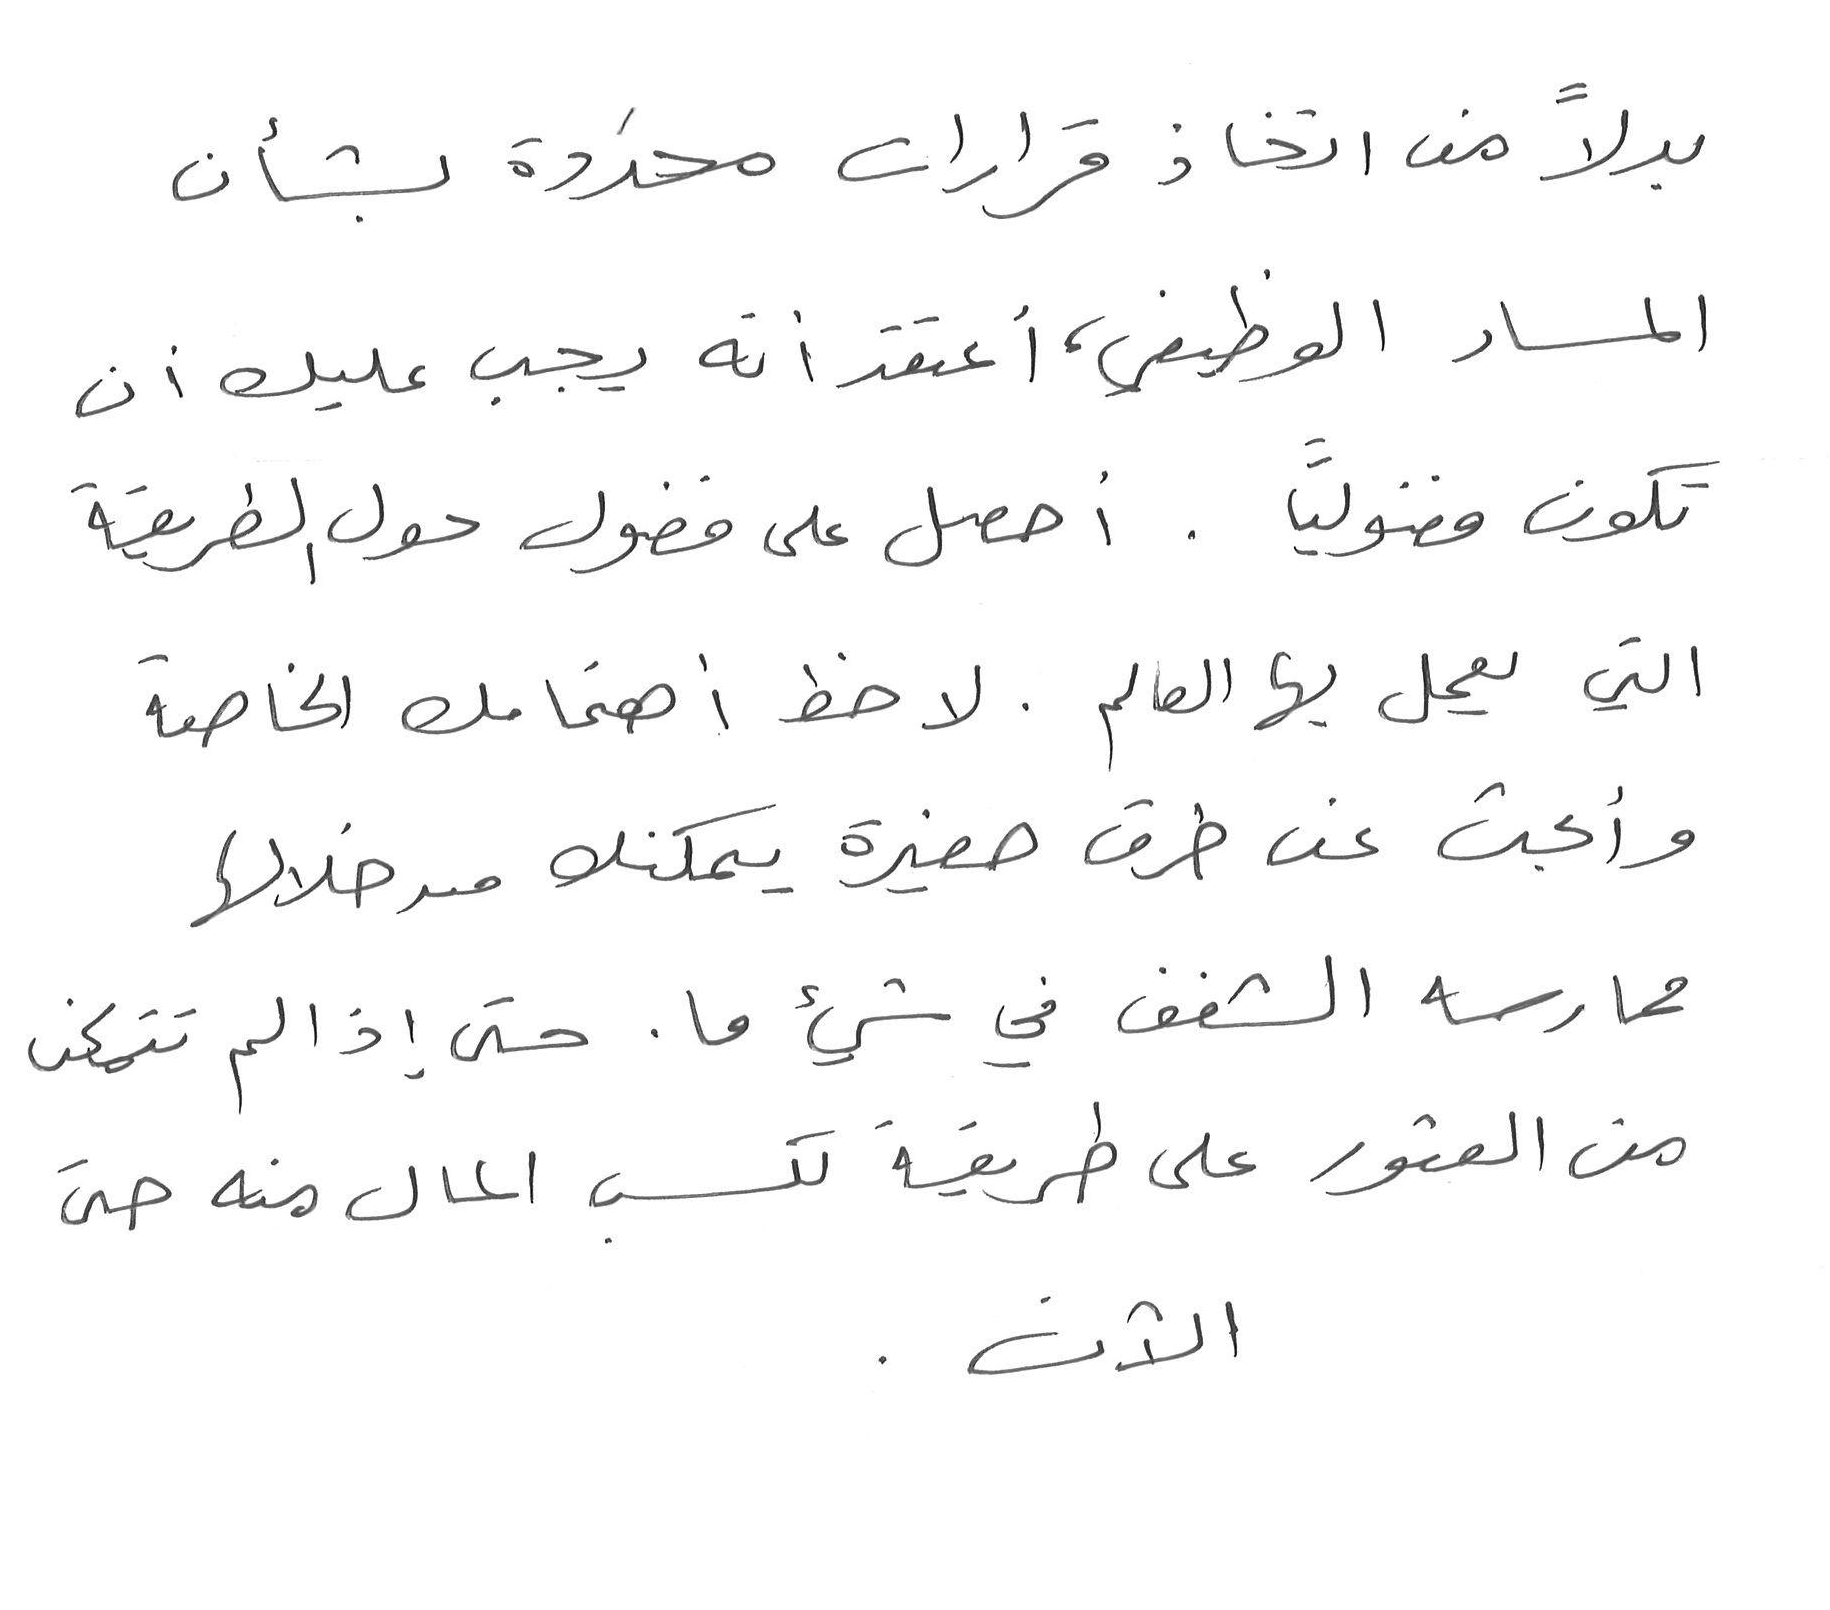 بدلاً من اتخاذ قرارات محددة بشأن
المسار الوظيفي، أعتقد أنه يجب عليك أن
تكون فضوليًّا . أحصل على فضول حول الطريقة
التي يعمل بها العالم . لاحظ أهتمامك الخاصة
وأبحث عن طرق صغيرة يمكنك من خلالها
ممارسه الشغف في شيئ ما . حتى إذا لم تتمكن
من العثور على طريقة لكسب المال منه حتى
الآن .